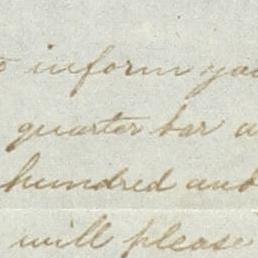 to inform you
quarter bar
hundred and
will please